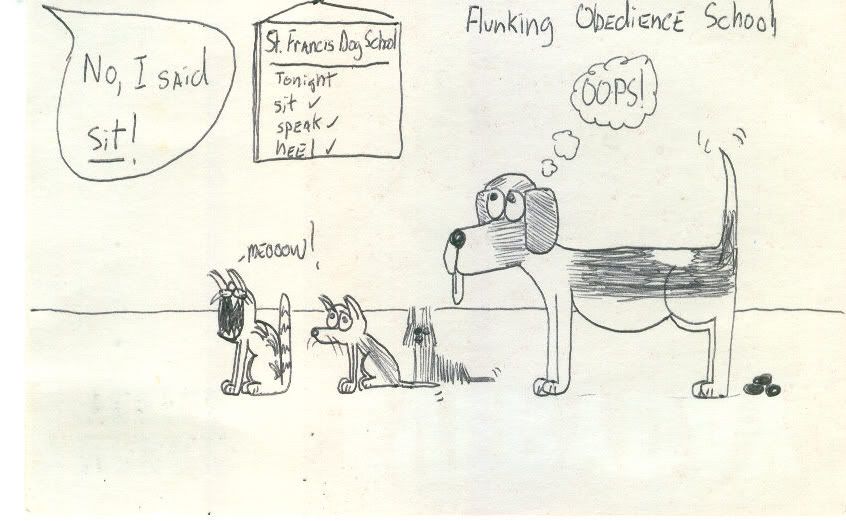 Flunking Obedience School
No, I said
sit!
St. Francis Dog School
Tonight
sit ✓
speak ✓
heel ✓
OOPS!
MEOOOW!